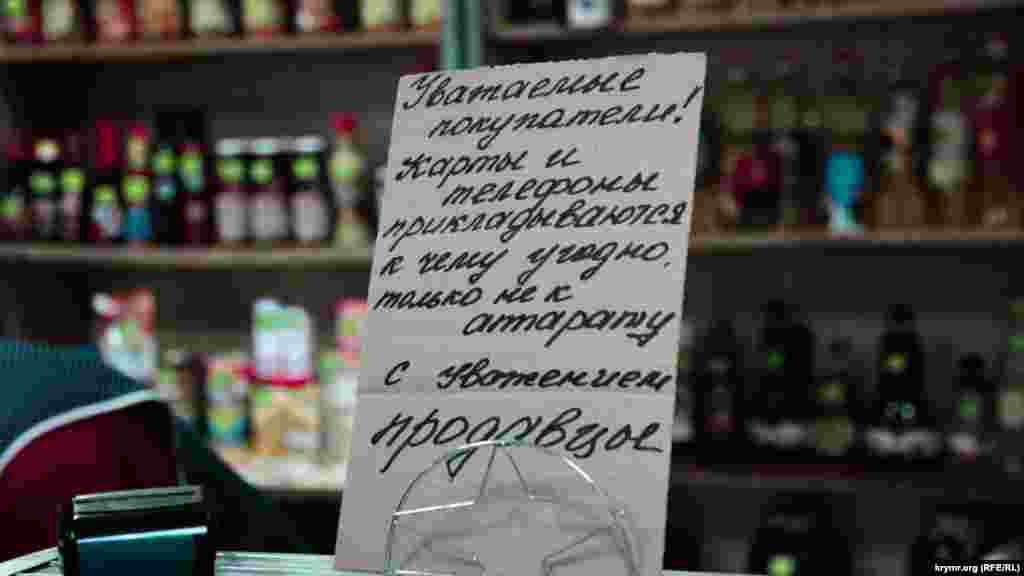 Уважаемые
покупатели!
карты и
телефоны
прикладываются
к чему угодно,
только не к
аппарату
с уважением
продавцы
krymr.org (RFE/RL)